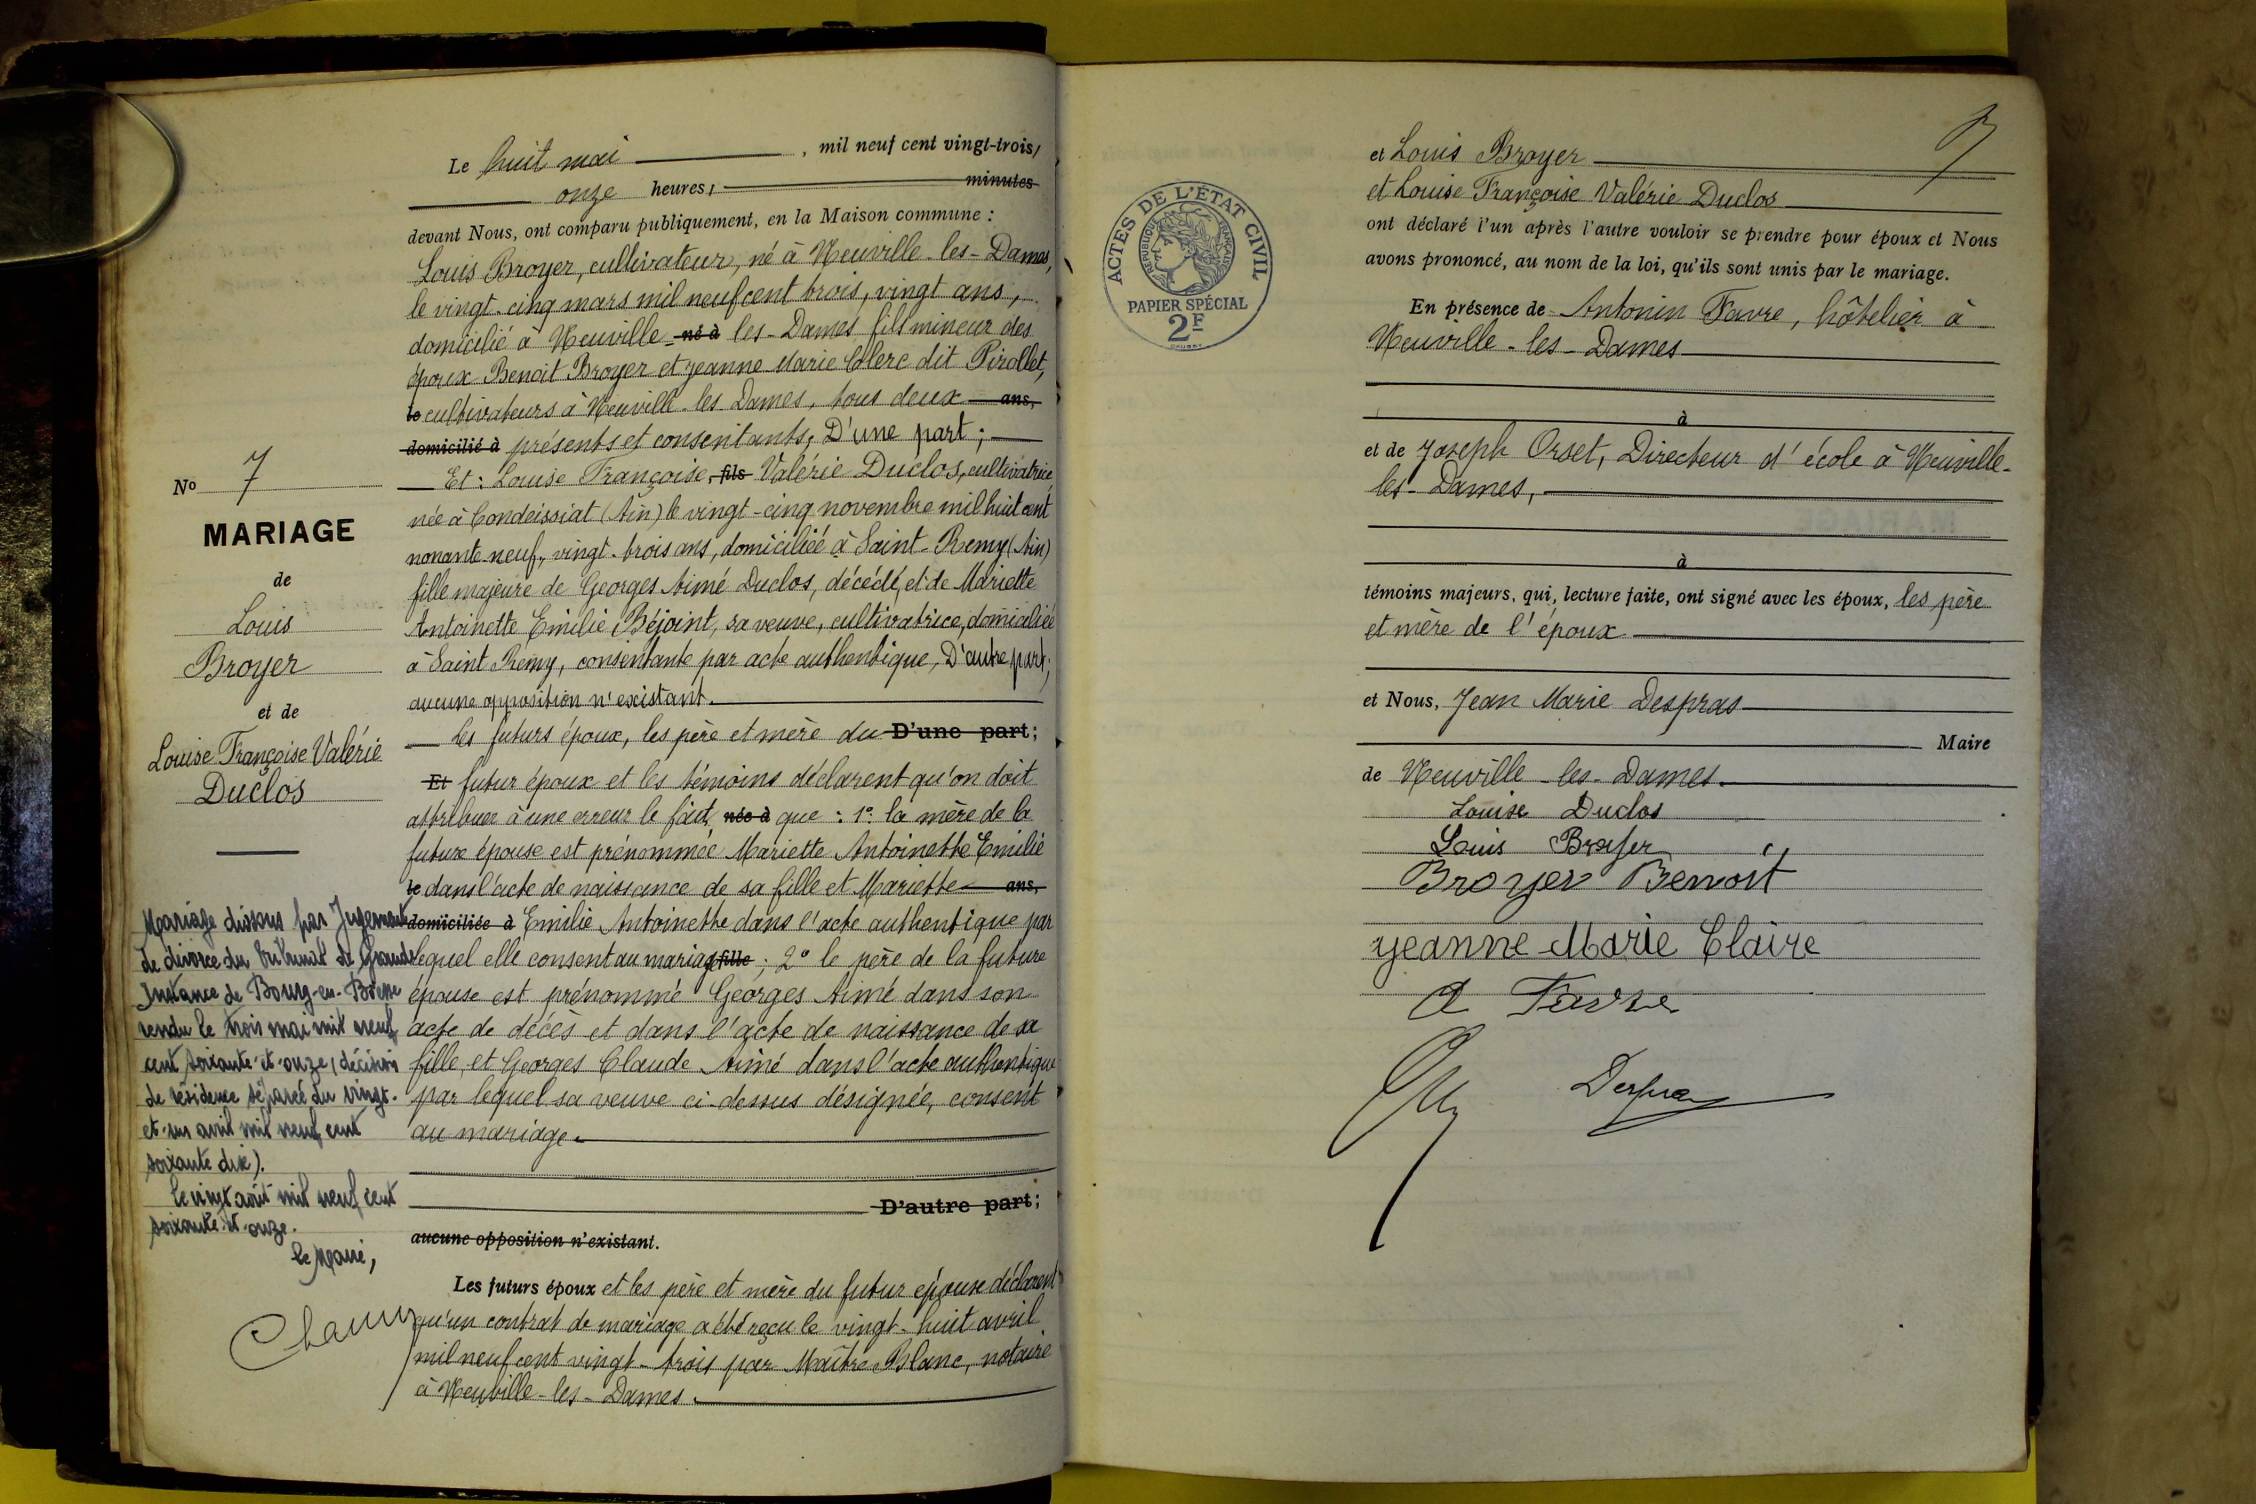 Le huit mai, mil neuf cent vingt-trois,
onze heures, minutes
devant Nous, ont comparu publiquement, en la Maison commune :
Louis Broyer, cultivateur, né à Neuville-les-Dames,
le vingt-cinq mars mil neuf cent trois, vingt ans,
domicilié à Neuville né à les-Dames fils mineur des
époux Benoit Broyer et Jeanne Marie Clerc dit Pirollet,
le cultivateurs à Neuville-les Dames, tous deux ans,
domicilié à présents et consentants, D'une part ;
Et : Louise Françoise, fils Valérie Duclos, cultivatrice,
née à Condeissiat (Ain) le vingt-cinq novembre mil huit cent
nonante-neuf, vingt-trois ans, domiciliée à Saint-Remy (Ain)
fille majeure de Georges Aimé Duclos, décédé, et de Mariette
Antoinette Emilie Béjoint, sa veuve, cultivatrice, domiciliée
à Saint Remy, consentante par acte authentique, D'autre part ;
aucune opposition n'existant.
Les futurs époux, les père et mère du D'une part ;
Et futur époux et les témoins déclarent qu'on doit
attribuer à une erreur le fait, née à que : 1° la mère de la
future épouse est prénommée Mariette Antoinette Emilie
le dans l'acte de naissance de sa fille et Mariette ans,
domiciliée à Emilie Antoinette dans l'acte authentique par
lequel elle consent au mariage fille ; 2° le père de la future
épouse est prénommé Georges Aimé dans son
acte de décès et dans l'acte de naissance de sa
fille, et Georges Claude Aimé dans l'acte authentique
par lequel sa veuve ci-dessus désignée, consent
au mariage.
D'autre part ;
aucune opposition n'existant.
Les futurs époux et les père et mère du futur épouse déclarent
qu'un contrat de mariage a été reçu le vingt-huit avril
mil neuf cent vingt-trois par Maître Blanc, notaire
à Neuville-les-Dames.
No 7
MARIAGE
de
Louis
Broyer
et de
Louise Françoise Valérie
Duclos
Mariage dissous par Jugement
de divorce du tribunal de Grande
Instance de Bourg-en-Bresse
rendu le trois mai mil neuf
cent soixante-et-onze (décision
de résidence séparée du vingt-
et-un avril mil neuf cent
soixante dix).
le vingt août mil neuf cent
soixante-et-onze.
le Maire,
7
ACTES DE L'ÉTAT CIVIL
RÉPUBLIQUE FRANÇAISE
PAPIER SPÉCIAL
2F
et Louis Broyer
et Louise Françoise Valérie Duclos
ont déclaré l'un après l'autre vouloir se prendre pour époux et Nous
avons prononcé, au nom de la loi, qu'ils sont unis par le mariage.
En présence de Antonin Favre, hôtelier à
Neuville-les-Dames
à
et de Joseph Orset, Directeur d'école à Neuville-
les-Dames,
à
témoins majeurs, qui, lecture faite, ont signé avec les époux, les père
et mère de l'époux
et Nous, Jean Marie Despras
Maire
de Neuville-les-Dames.
Louise Duclos
Louis Broyer
Broyer Benoit
Jeanne Marie Claire
A Favre
Despras